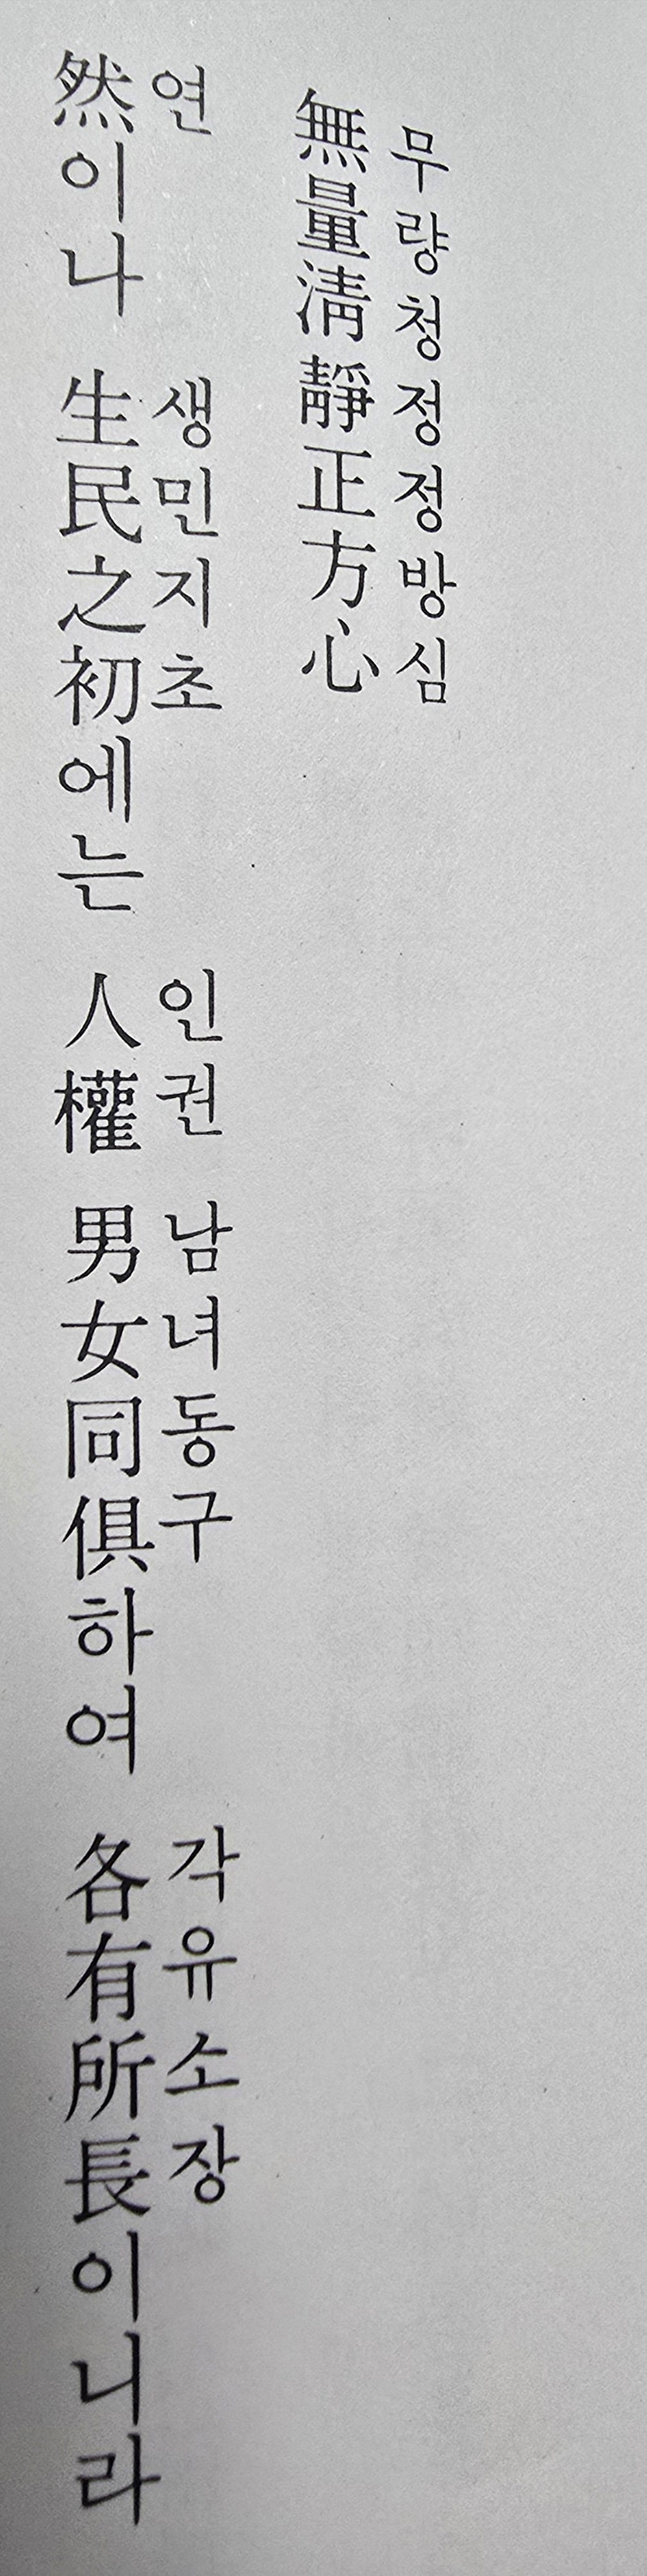 무량청정정방심
無量淸靜正方心
연 생민지초 인권 남녀동구 각유소장
然이나 生民之初에는 人權 男女同俱하여 各有所長이니라